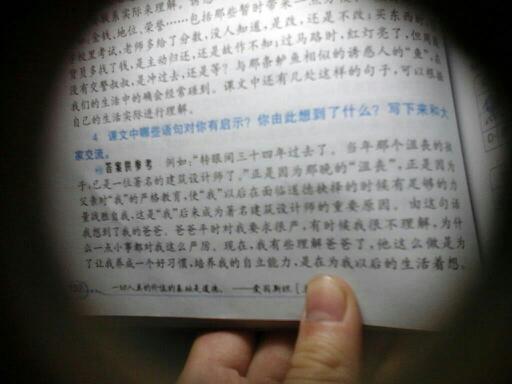 联系实际来理解。
金钱、地位、荣誉……包括那些暂时带来一点
学校里考试,老师多给了分数,没人知道,是改,还是不改;买东西时
货员多找了钱,是主动归还,还是故作不知;过马路时,红灯亮了,但周
没有交警叔叔,是冲过去,还是等?与那条鲈鱼相似的诱惑人的“鱼”,在
我们的生活中的确会经常碰到。课文中还有几处这样的句子,可以根据
自己的生活实际进行理解。
4 课文中哪些语句对你有启示?你由此想到了什么?写下来和大
家交流。
答案供参考 例如:“转眼间三十四年过去了。当年那个沮丧的孩
子,已是一位著名的建筑设计师了。”正是因为那晚的“沮丧”,正是因为
父亲对“我”的严格教育,使“我”以后在面临道德抉择的时候有足够的力
量战胜自我,这是“我”后来成为著名建筑设计师的重要原因。由这句话
我想到了我的爸爸。爸爸平时对我要求很严,有时候我很不理解,为什
么一点小事都对我这么严厉。现在,我有些理解爸爸了,他这么做是为
了让我养成一个好习惯,培养我的自立能力,是在为我以后的生活着想。
一切人类的价值的基础是道德。 ——爱因斯坦